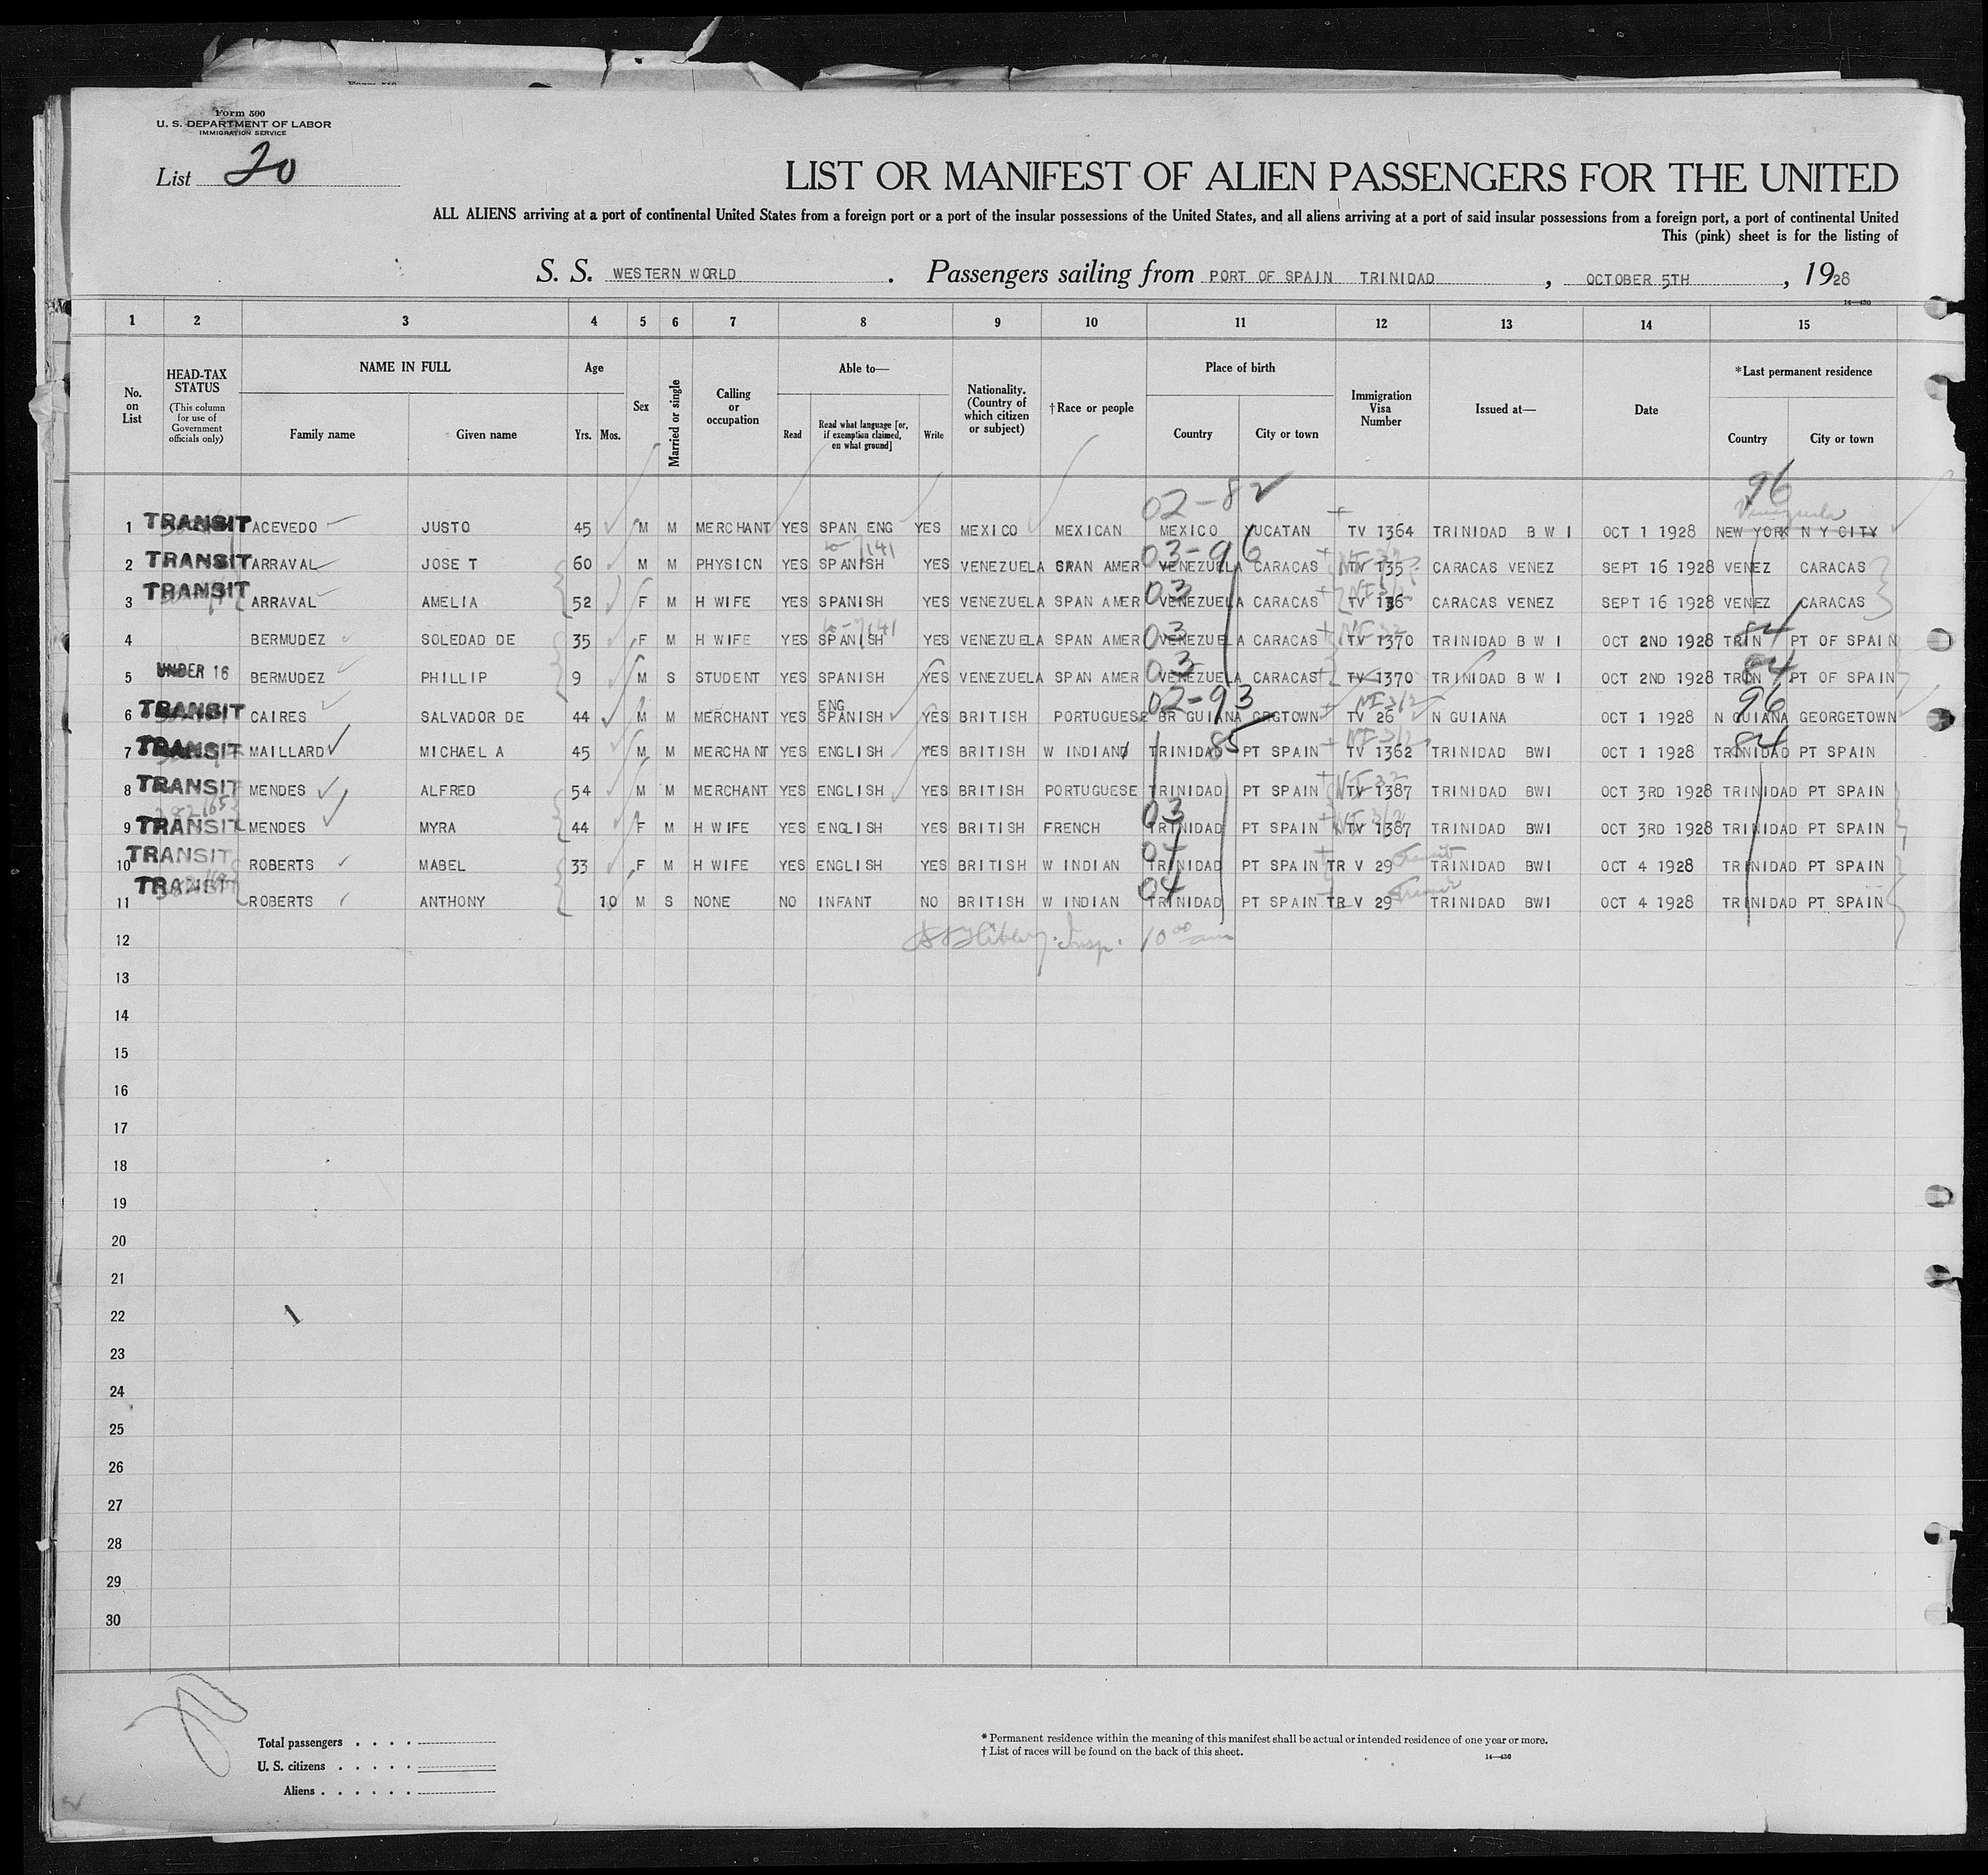 Form 500
U. S. DEPARTMENT OF LABOR
IMMIGRATION SERVICE
List 20
LIST OR MANIFEST OF ALIEN PASSENGERS FOR THE UNITED
ALL ALIENS arriving at a port of continental United States from a foreign port or a port of the insular possessions of the United States, and all aliens arriving at a port of said insular possessions from a foreign port, a port of continental United
This (pink) sheet is for the listing of
S. S. WESTERN WORLD . Passengers sailing from PORT OF SPAIN TRINIDAD , OCTOBER 5TH , 1928
14—430
1 2 3 4 5 6 7 8 9 10 11 12 13 14 15
No. on List
HEAD-TAX STATUS (This column for use of Government officials only)
NAME IN FULL
Family name Given name
Age
Yrs. Mos.
Sex
Married or single
Calling or occupation
Able to—
Read
Read what language [or, if exemption claimed, on what ground]
Write
Nationality. (Country of which citizen or subject)
†Race or people
Place of birth
Country City or town
Immigration Visa Number
Issued at—
Date
*Last permanent residence
Country City or town
02-82 96
Venezuela
1 TRANSIT ACEVEDO JUSTO 45 M M MERCHANT YES SPAN ENG YES MEXICO MEXICAN MEXICO YUCATAN TV 1364 TRINIDAD B W I OCT 1 1928 NEW YORK N Y CITY
03-96
2 TRANSIT ARRAVAL JOSE T 60 M M PHYSICN YES SPANISH YES VENEZUELA SPAN AMER VENEZUELA CARACAS TV 135 CARACAS VENEZ SEPT 16 1928 VENEZ CARACAS
03
3 TRANSIT ARRAVAL AMELIA 52 F M H WIFE YES SPANISH YES VENEZUELA SPAN AMER VENEZUELA CARACAS TV 136 CARACAS VENEZ SEPT 16 1928 VENEZ CARACAS
03 84
4 BERMUDEZ SOLEDAD DE 35 F M H WIFE YES SPANISH YES VENEZUELA SPAN AMER VENEZUELA CARACAS TV 1370 TRINIDAD B W I OCT 2ND 1928 TRIN PT OF SPAIN
03 84
5 UNDER 16 BERMUDEZ PHILLIP 9 M S STUDENT YES SPANISH YES VENEZUELA SPAN AMER VENEZUELA CARACAS TV 1370 TRINIDAD B W I OCT 2ND 1928 TRIN PT OF SPAIN
ENG 02-93 96
6 TRANSIT CAIRES SALVADOR DE 44 M M MERCHANT YES SPANISH YES BRITISH PORTUGUESE BR GUIANA GRGTOWN TV 26 N GUIANA OCT 1 1928 N GUIANA GEORGETOWN
85 84
7 TRANSIT MAILLARD MICHAEL A 45 M M MERCHANT YES ENGLISH YES BRITISH W INDIAN TRINIDAD PT SPAIN TV 1362 TRINIDAD BWI OCT 1 1928 TRINIDAD PT SPAIN
8 TRANSIT MENDES ALFRED 54 M M MERCHANT YES ENGLISH YES BRITISH PORTUGUESE TRINIDAD PT SPAIN TV 1387 TRINIDAD BWI OCT 3RD 1928 TRINIDAD PT SPAIN
03
9 TRANSIT MENDES MYRA 44 F M H WIFE YES ENGLISH YES BRITISH FRENCH TRINIDAD PT SPAIN TV 1387 TRINIDAD BWI OCT 3RD 1928 TRINIDAD PT SPAIN
04
10 TRANSIT ROBERTS MABEL 33 F M H WIFE YES ENGLISH YES BRITISH W INDIAN TRINIDAD PT SPAIN TR V 29 Transit TRINIDAD BWI OCT 4 1928 TRINIDAD PT SPAIN
04
11 TRANSIT ROBERTS ANTHONY 10 M S NONE NO INFANT NO BRITISH W INDIAN TRINIDAD PT SPAIN TR V 29 Transit TRINIDAD BWI OCT 4 1928 TRINIDAD PT SPAIN
12 Insp. 10 00 am
13
14
15
16
17
18
19
20
21
22
23
24
25
26
27
28
29
30
Total passengers . . . .
U. S. citizens . . . . .
Aliens . . . . . .
* Permanent residence within the meaning of this manifest shall be actual or intended residence of one year or more.
† List of races will be found on the back of this sheet.
14—430